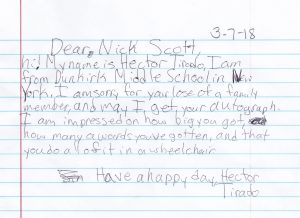 3-7-18
Dear, Nick Scott,
hi! My name is Hector Tirado, I am
from Dunkirk Middle School in New
York. I am sorry for your lose of a family
member, and may I, get, your autograph.
I am impressed on how big you got,
how many awords you've gotten, and that
you do all of it in a wheelchair
Have a happy day, Hector
Tirado